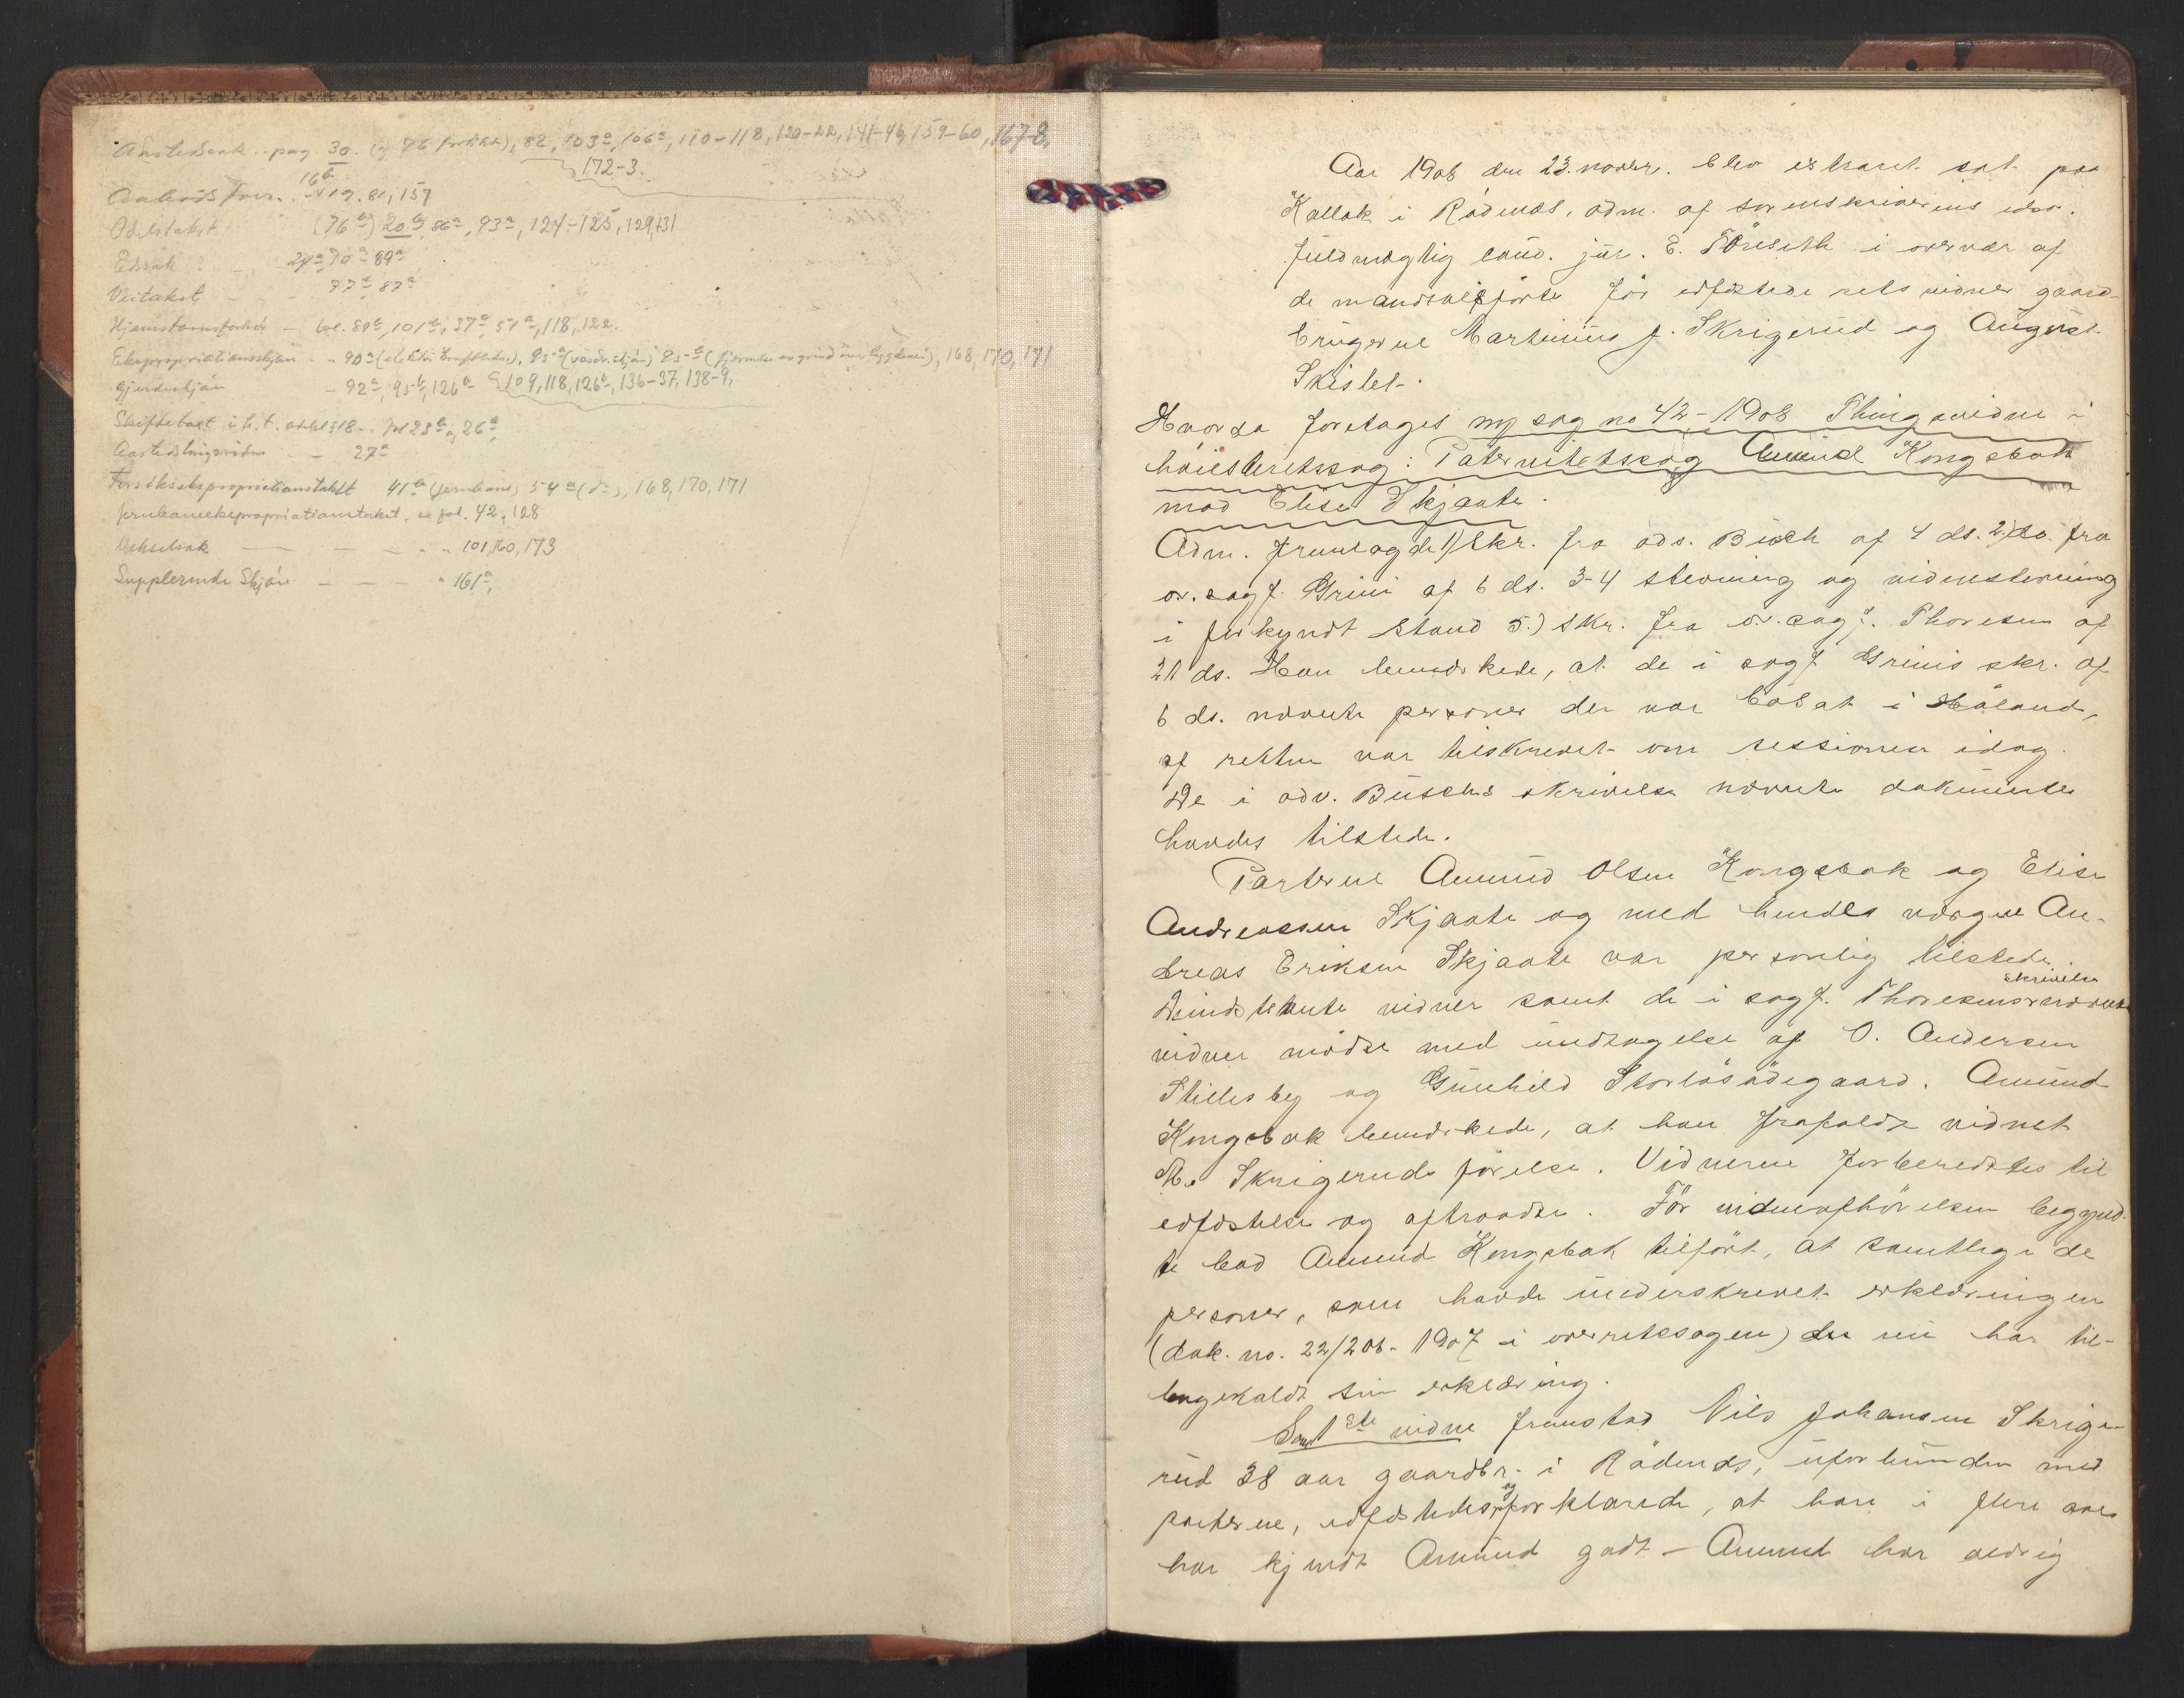 Aastedsak. pag 30. (og 76 fortsat), 82, 103ª, 106ª, 110-118, 120-22, 141-46, 159-60, 167-8,
172-3.
16b
Aabodsforr. - 19. 81, 157
Odelstakst (76b) 20b, 86ª, 93ª, 124-125, 129, 131
Edsak 24ª 70ª 89ª
Veitakst - - 77ª 87ª
Hjemstavnsforhör - fol. 89b, 101b, 37ª, 51ª, 118, 122.
Ekspropriationsskjön - " 90ª (elektr. kraftledn), 95ª (vasdr. skjön) 25b (fjernelse av grind over bygdevei), 168, 170, 171
Gjerdeskjön - 92ª, 95b, 126ª 109, 118, 126b, 136-37, 138-9,
Skiftetaxt i h. t. odelsl § 18 - fol 23b, 26ª
Aastedstingsvidne - - 27ª
Forsöksekspropriationstakst 41b (jernbane) 54ª (do), 168, 170, 171
Jernbaneekspropriationstakst, se fol. 42, 128
Vekselsak - - - " " 101, 160, 173
Supplerende Skjön - - - " 161ª,
Aar 1908 den 23. novbr. blev extraret sat paa
Kallak i Rödenæs, adm. af sorenskriverens edsv.
fuldmægtig cand. jur. E. Töreseth i overvær af
de mandtalsförte för edfæstede retsvidner gaard-
brugerne Martinius J. Skrigerud og August
Skislet.
Hvorda foretages ny sag no 42-1908 Thingsvidne i
höiesteretssag: Paternitetssag Amund Kongsbak
mod Elise Skjaate.
Adm. fremlagde 1) Skr. fra adv. Busch af 4 ds. 2) do. fra
o.r. sagf. Grini af 6 ds. 3-4 stevning og vidnestevning
i forkyndt stand 5.) skr. fra o.r. sagf. Thoresen af
21 ds. Han bemærkede, at de i sagf Grinis skr. af
6 ds. nævnte personer der var bosat i Höland,
af retten var tilskrevet om sessionen idag.
De i adv. Buschs skrivelse nævnte dokumenter
havdes tilstede.
Parterne Amund Olsen Kongsbak og Elise
Andreassen Skjaate og med hendes værge An-
dreas Eriksen Skjaate var personlig tilstede.
De indstevnte vidner samt de i sagf. Thoresens skrivelse nævnte
vidner mödte med undtagelse af O. Andersen
Stillesby og Gunhild Storlösödegaard. Amund
Kongsbak bemærkede, at han frafaldt vidnet
M. Skrigeruds förelse. Vidnerne forberedtes til
edfæstelse og aftraadte. För vidneafhörelsen begynd-
te bad Amund Kongsbak tilfört, at samtlige de
personer, som havde underskrevet erklæringen
(dok. no. 22/206-1907 i overretssagen) der nu har til-
bagekaldt sin erklæring.
Som 1ste vidne fremstod Nils Johansen Skrige-
rud 38 aar gaardbr. i Rödenæs, uforbunden med
parterne, edfæstedes og forklarede, at han i flere aar
har kjendt Amund godt - Amund har aldrig